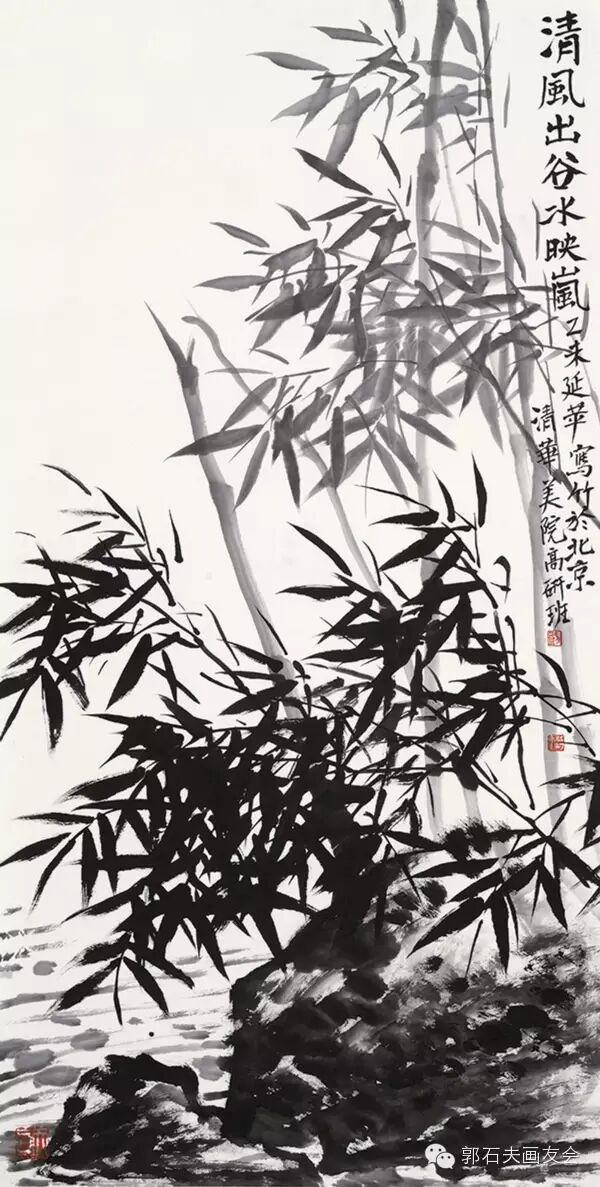 清風出谷水映嵐乙未延苹寫竹於北京
清華美院高研班
郭石夫画友会